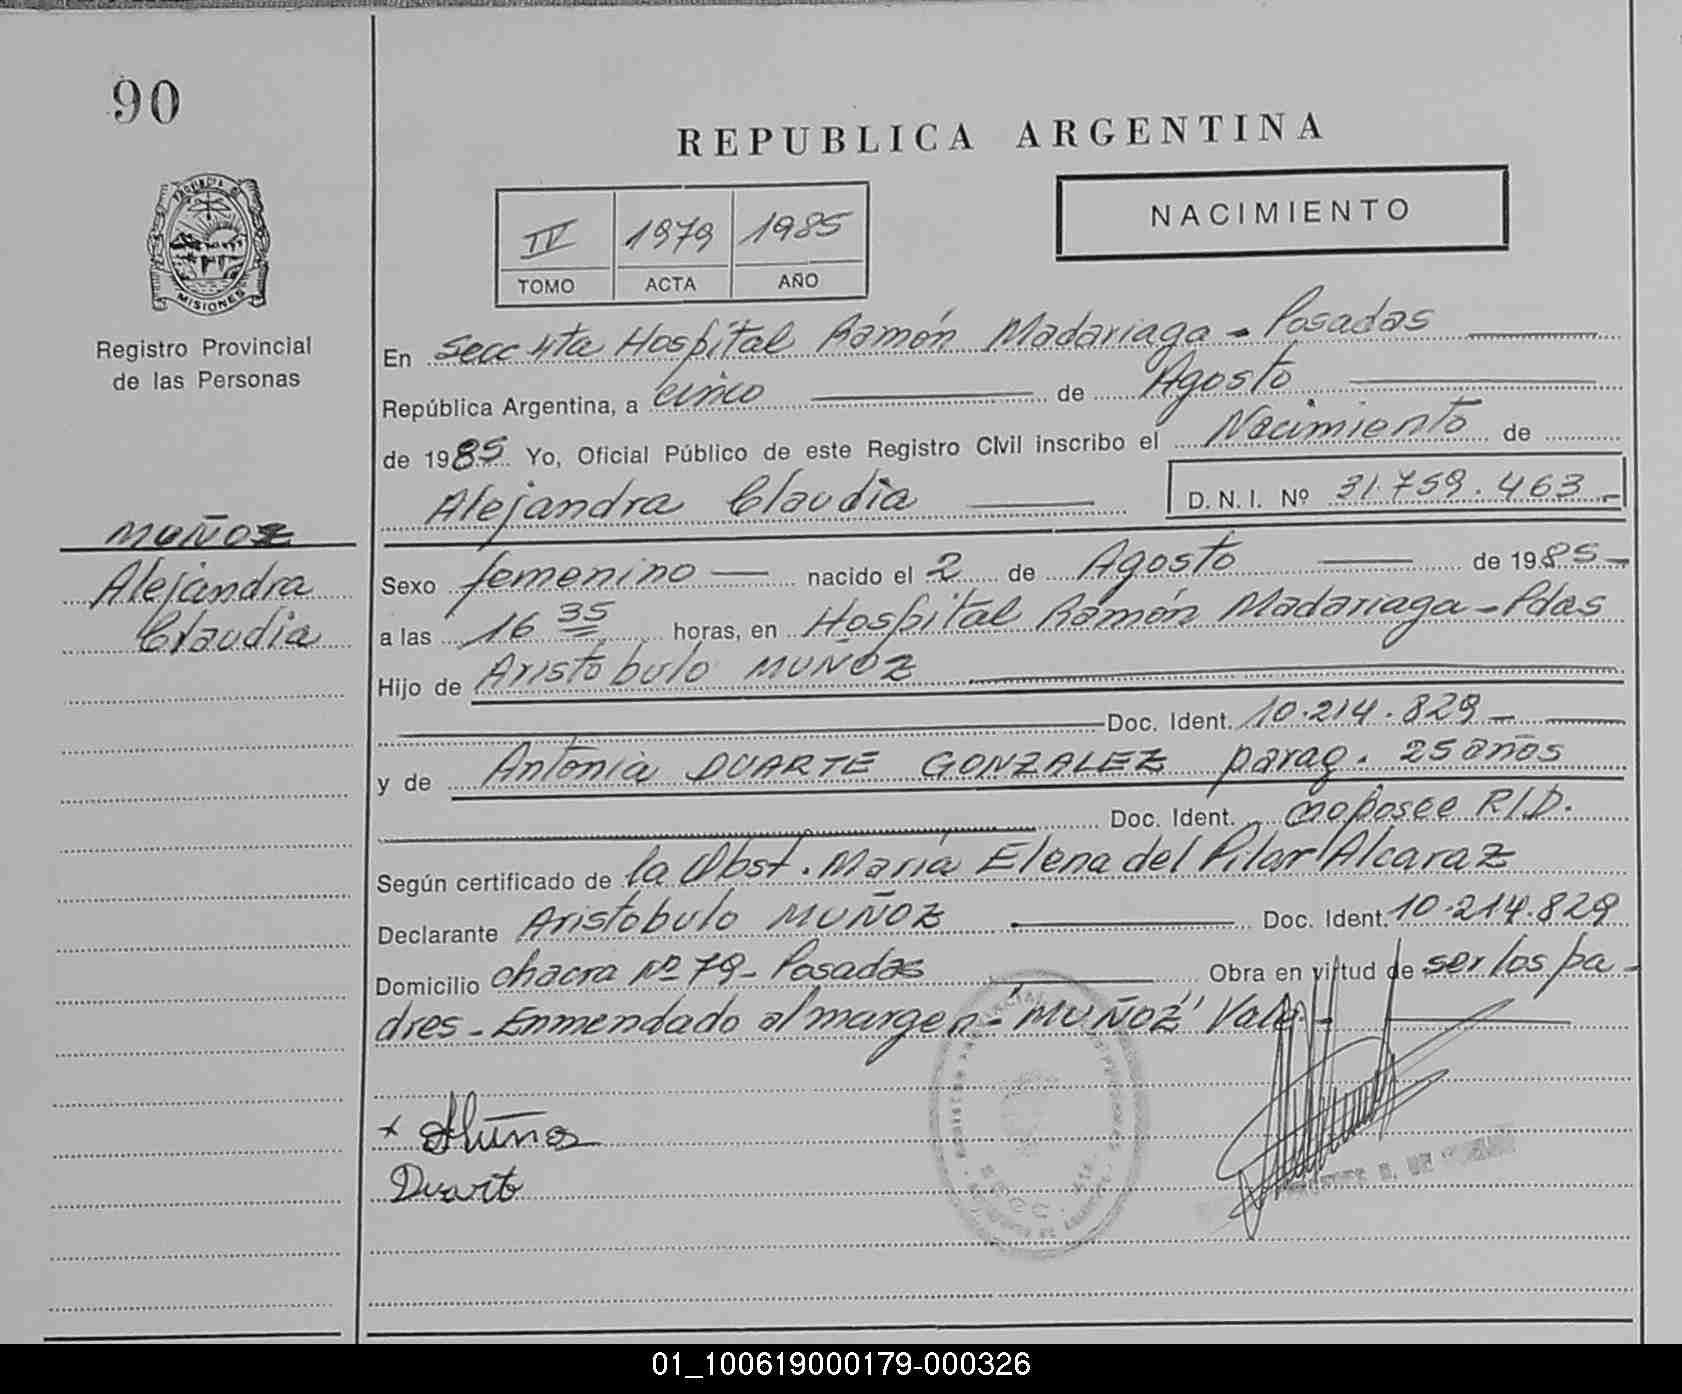 90
REPUBLICA ARGENTINA
NACIMIENTO
IV 1979 1985
TOMO ACTA AÑO
PROVINCIA DE
MISIONES
Registro Provincial
de las Personas
En Secc 4ta Hospital Ramón Madariaga - Posadas
República Argentina, a cinco de Agosto
de 1985 Yo, Oficial Público de este Registro Civil inscribo el Nacimiento de
Alejandra Claudia D. N. I. Nº 31.759.463.-
MUÑOZ
Alejandra
Claudia
Sexo femenino nacido el 2 de Agosto de 1985-
a las 16 35 horas, en Hospital Ramón Madariaga - Pdas
Hijo de Aristobulo MUÑOZ
Doc. Ident. 10.214.829-
y de Antonia DUARTE GONZALEZ parag. 25 años
Doc. Ident. no posee R/D.
Según certificado de la Obst. María Elena del Pilar Alcaraz
Declarante Aristobulo MUÑOZ Doc. Ident. 10.214.829
Domicilio chacra Nº 79- Posadas Obra en virtud de ser los pa-
dres - Enmendado al margen - "MUÑOZ" Vale-
x AMuños
Duarte
01_100619000179-000326